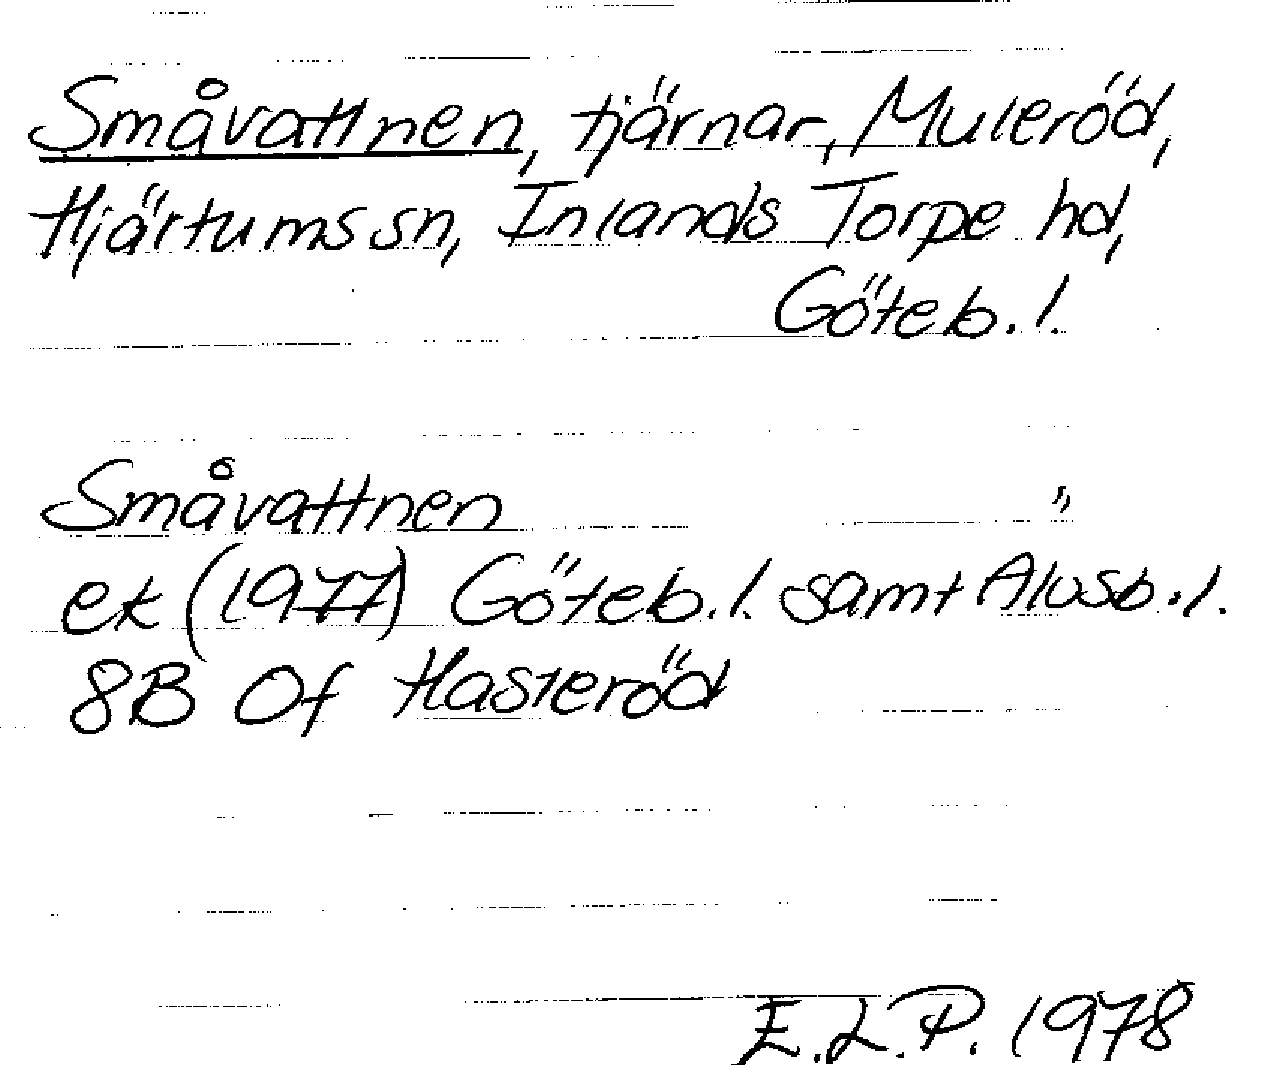 Småvattnen, tjärnar, Muleröd,
Hjärtums sn, Inlands Torpe hd,
Göteb. l.
Småvattnen "
ek (1977) Göteb. l. samt Älvsb. l.
8B 0f Hasteröd
E.L.P. 1978